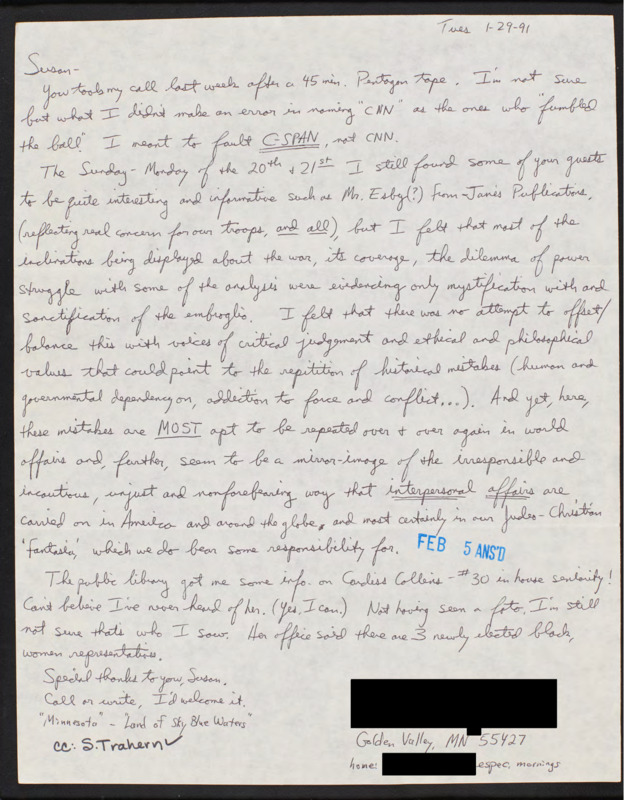 Tues 1-29-91
Susan-
You took my call last week after a 45 min. Pentagon tape. I'm not sure
but what I didn't make an error in naming "CNN" as the ones who "fumbled
the ball." I meant to fault C-SPAN, not CNN.
The Sunday-Monday of the 20th + 21st I still found some of your guests
to be quite interesting and informative such as Mr. Esby(?) from Janes Publications,
(reflecting real concern for our troops, and all), but I felt that most of the
inclinations being displayed about the war, its coverage, the dilemma of power
struggle with some of the analysis were evidencing only mystification with and
sanctification of the embroglio. I felt that there was no attempt to offset/
balance this with voices of critical judgement and ethical and philosophical
values that could point to the repitition of historical mistakes (human and
governmental dependency on, addiction to force and conflict...). And yet, here,
these mistakes are MOST apt to be repeated over + over again in world
affairs and, further, seem to be a mirror-image of the irresponsible and
incautious, unjust and nonforebearing way that interpersonal affairs are
carried on in America and around the globe, and most certainly in our Judeo-Christian
'Fantasia,' which we do bear some responsibility for.
FEB 5 ANS'D
The public library got me some info. on Cardiss Collins - #30 in house seniority!
Can't believe I've never heard of her. (Yes, I can.) Not having seen a foto, I'm still
not sure that's who I saw. Her office said there are 3 newly elected black,
women representatives.
Special thanks to you, Susan.
Call or write, I'd welcome it.
"Minnesota" - Land of Sky Blue Waters"
cc: S. Trahern ✓
Golden Valley, MN 55427
home: espec. mornings